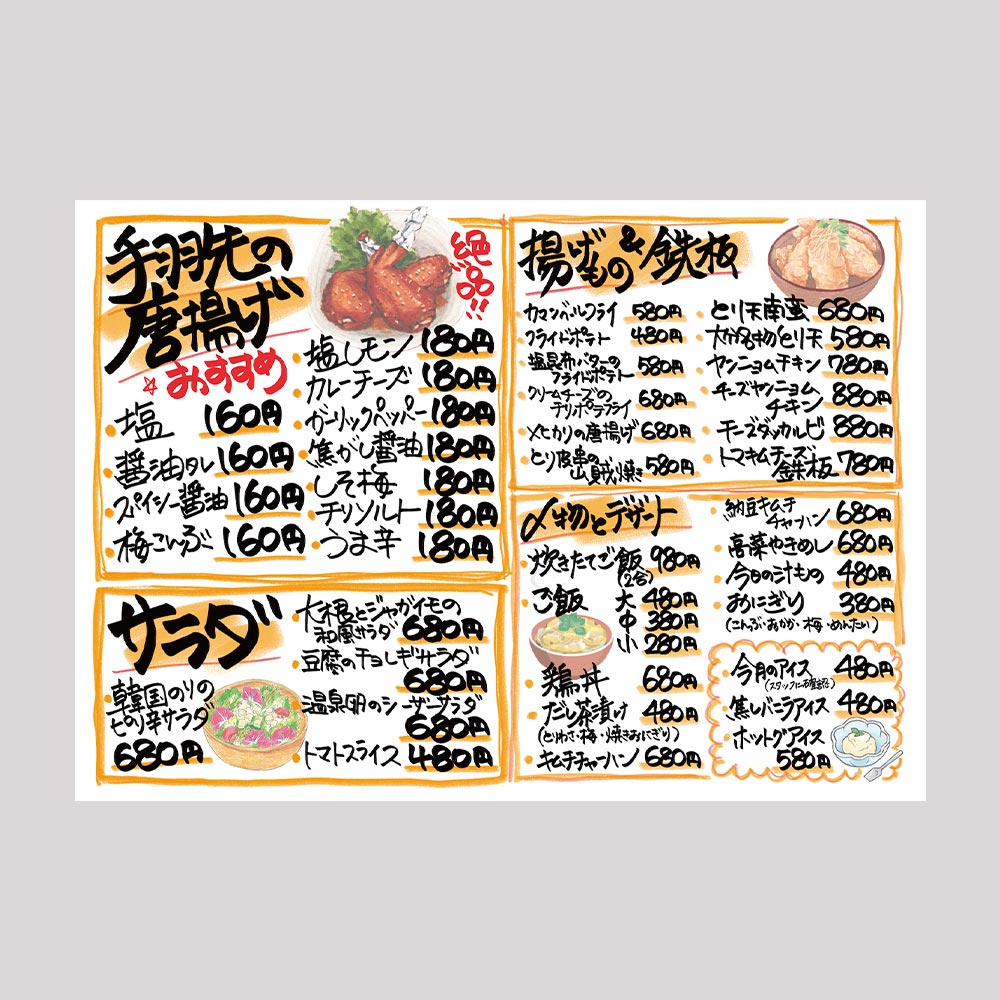 手羽先の
唐揚げ
絶品!!
☆おすすめ
・塩 160円
・醤油タレ 160円
・スパイシー醤油 160円
・梅こんぶ 160円
・塩レモン 180円
・カレーチーズ 180円
・ガーリックペッパー 180円
・焦がし醤油 180円
・しそ梅 180円
・チリソルト 180円
・うま辛 180円
サラダ
・韓国のりの
ピリ辛サラダ
680円
・大根とジャガイモの
和風サラダ 680円
・豆腐のチョレギサラダ
680円
・温泉卵のシーザーサラダ
680円
・トマトスライス 480円
揚げもの&鉄板
・カマンベールフライ 580円
・フライドポテト 480円
・塩昆布バターの
フライドポテト 580円
・クリームチーズの
チリポテフライ 680円
・メヒカリの唐揚げ 680円
・とり皮串の
山賊焼き 580円
・とり天南蛮 680円
・大分名物とり天 580円
・ヤンニョムチキン 780円
・チーズヤンニョム
チキン 880円
・チーズダッカルビ 880円
・トマキムチーズ
鉄板 780円
〆物とデザート
・炊きたてご飯 980円
(2合)
・ご飯 大 480円
中 380円
小 280円
・鶏丼 680円
・だし茶漬け 480円
(とりわさ・梅・焼きおにぎり)
・キムチチャーハン 680円
・納豆キムチ
チャーハン 680円
・高菜やきめし 680円
・今日の汁もの 480円
・おにぎり 380円
(こんぶ・おかか・梅・めんたい)
・今月のアイス 480円
(スタッフに確認)
・焦しバニラアイス 480円
・ホットグアイス
580円